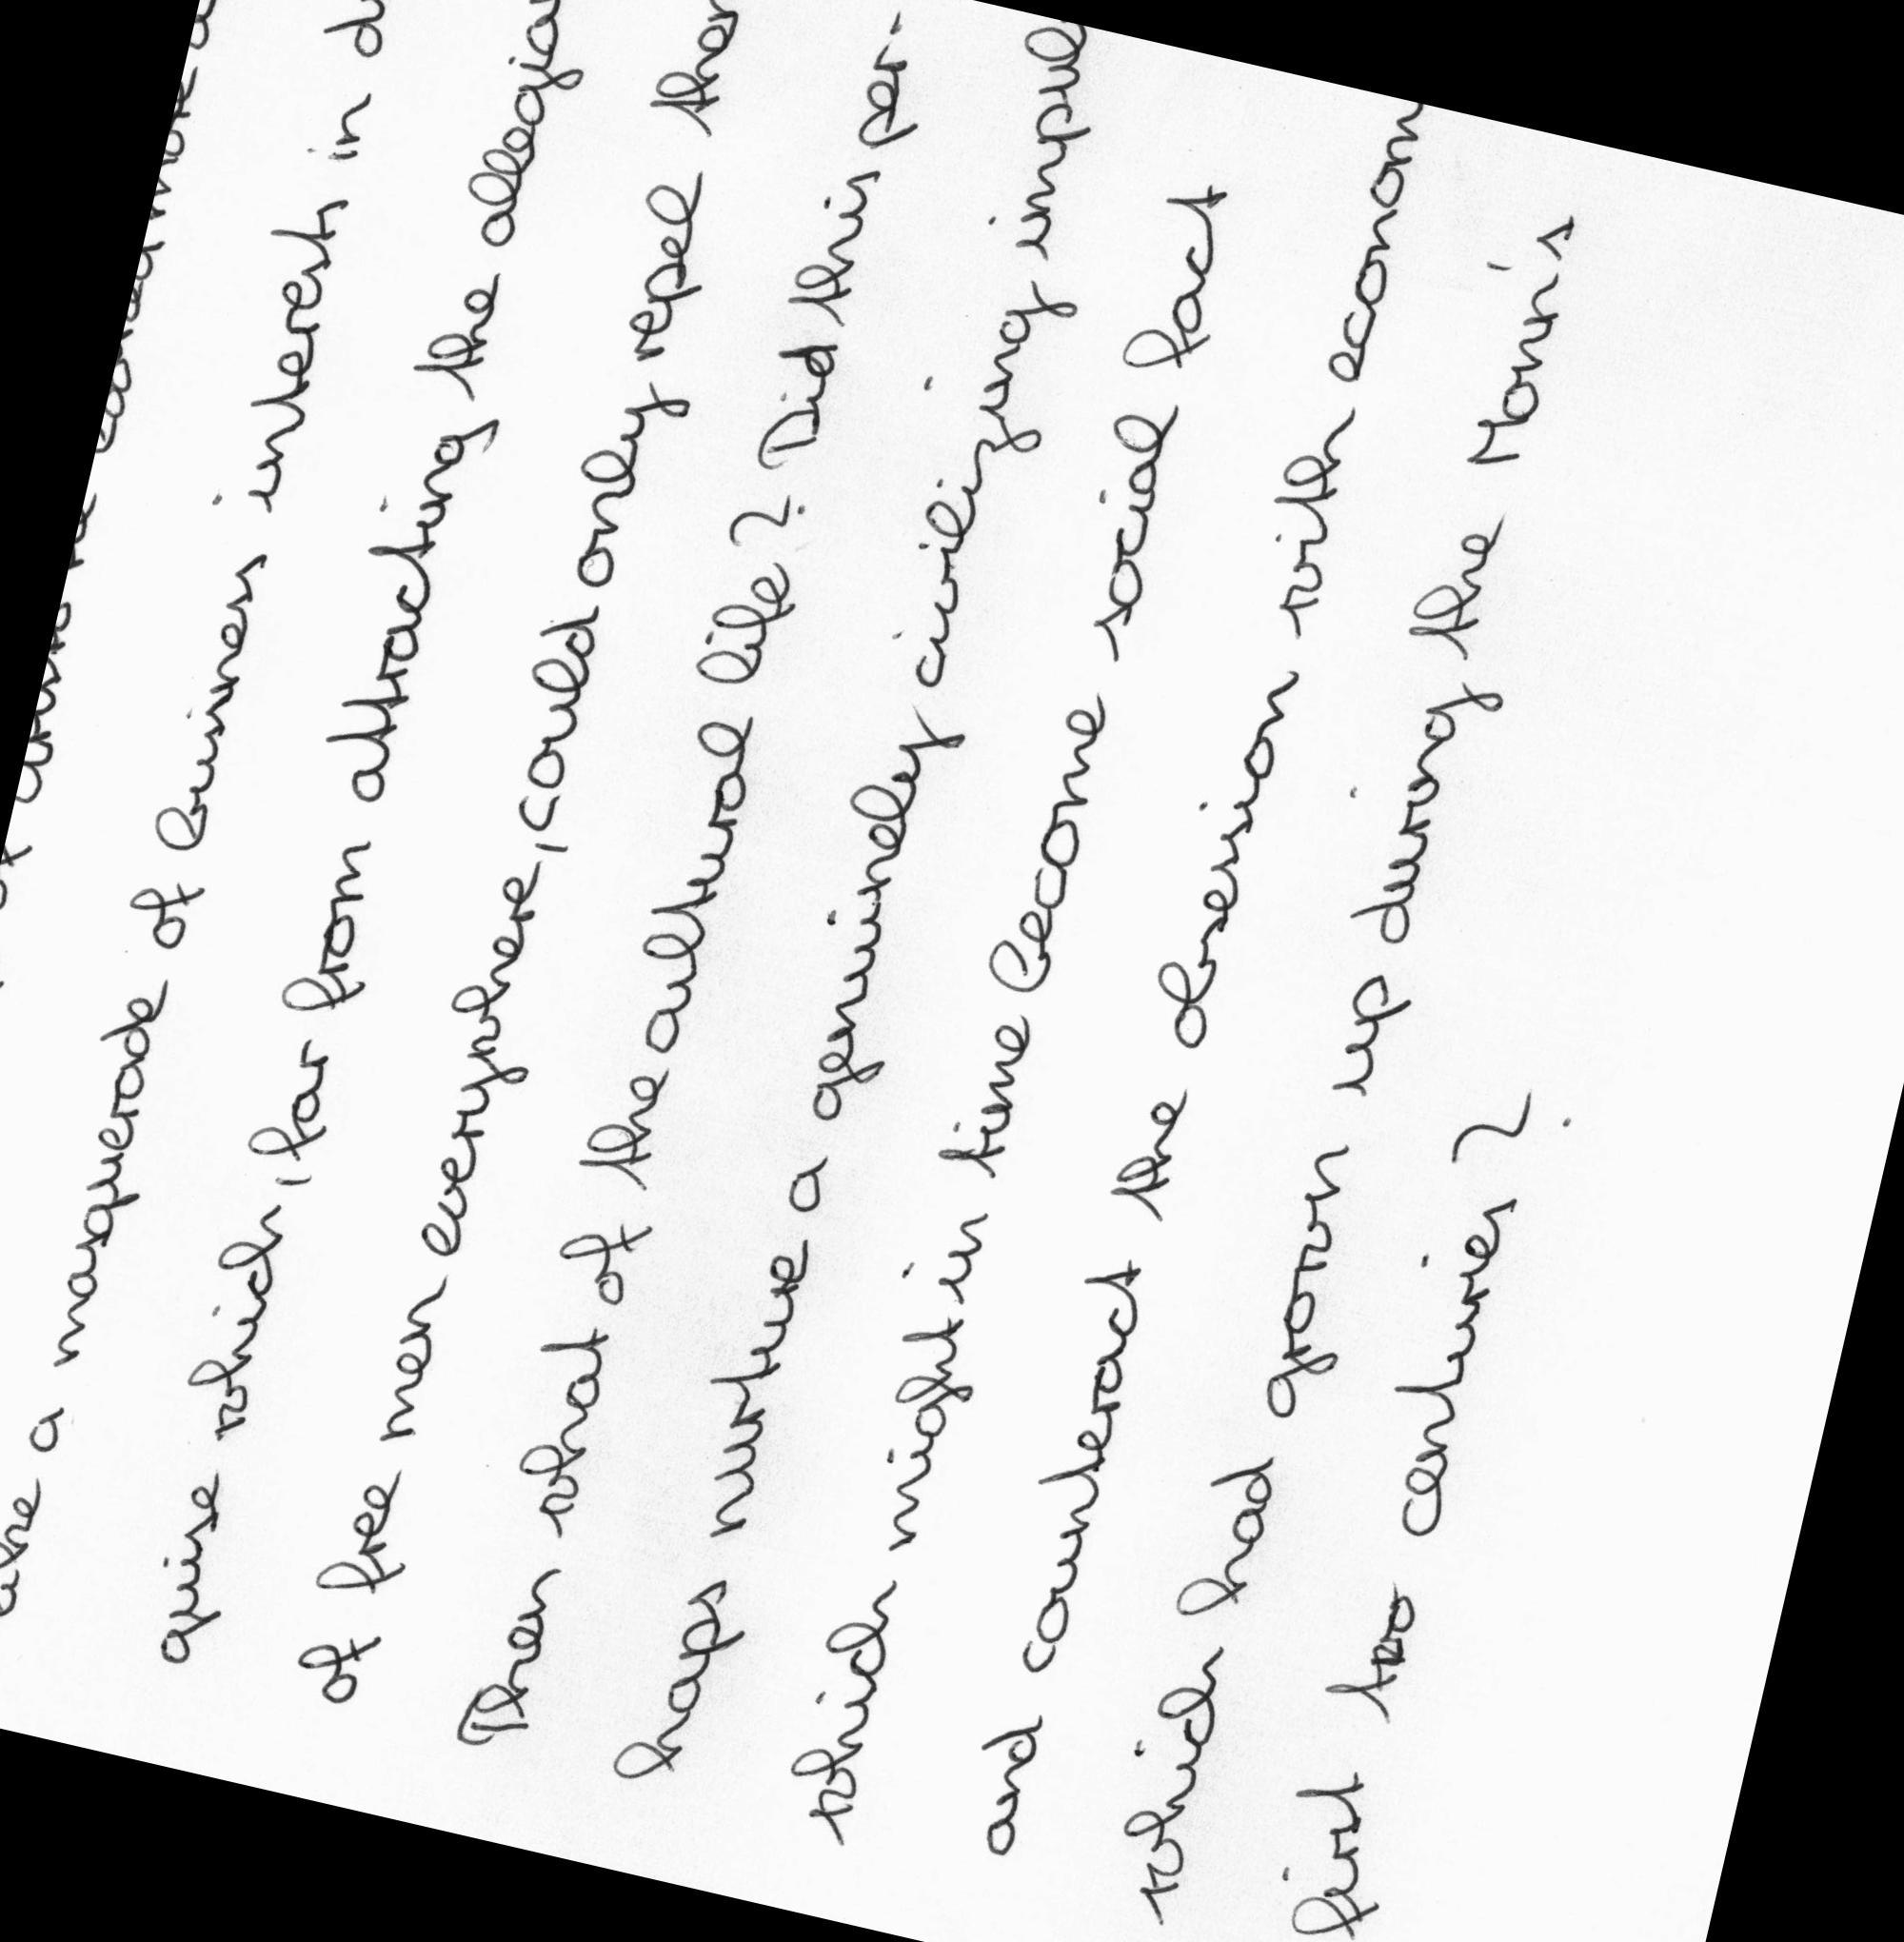 a masquerade of business interests in
guise which, far from attracting the
of free men everywhere, could only repel
Then what of the cultural life? Did this per-
haps nurture a genuinely civilizing
which might in time become social fact
and counteract the obsession with
which had grown up during the Moni's
first two centuries?